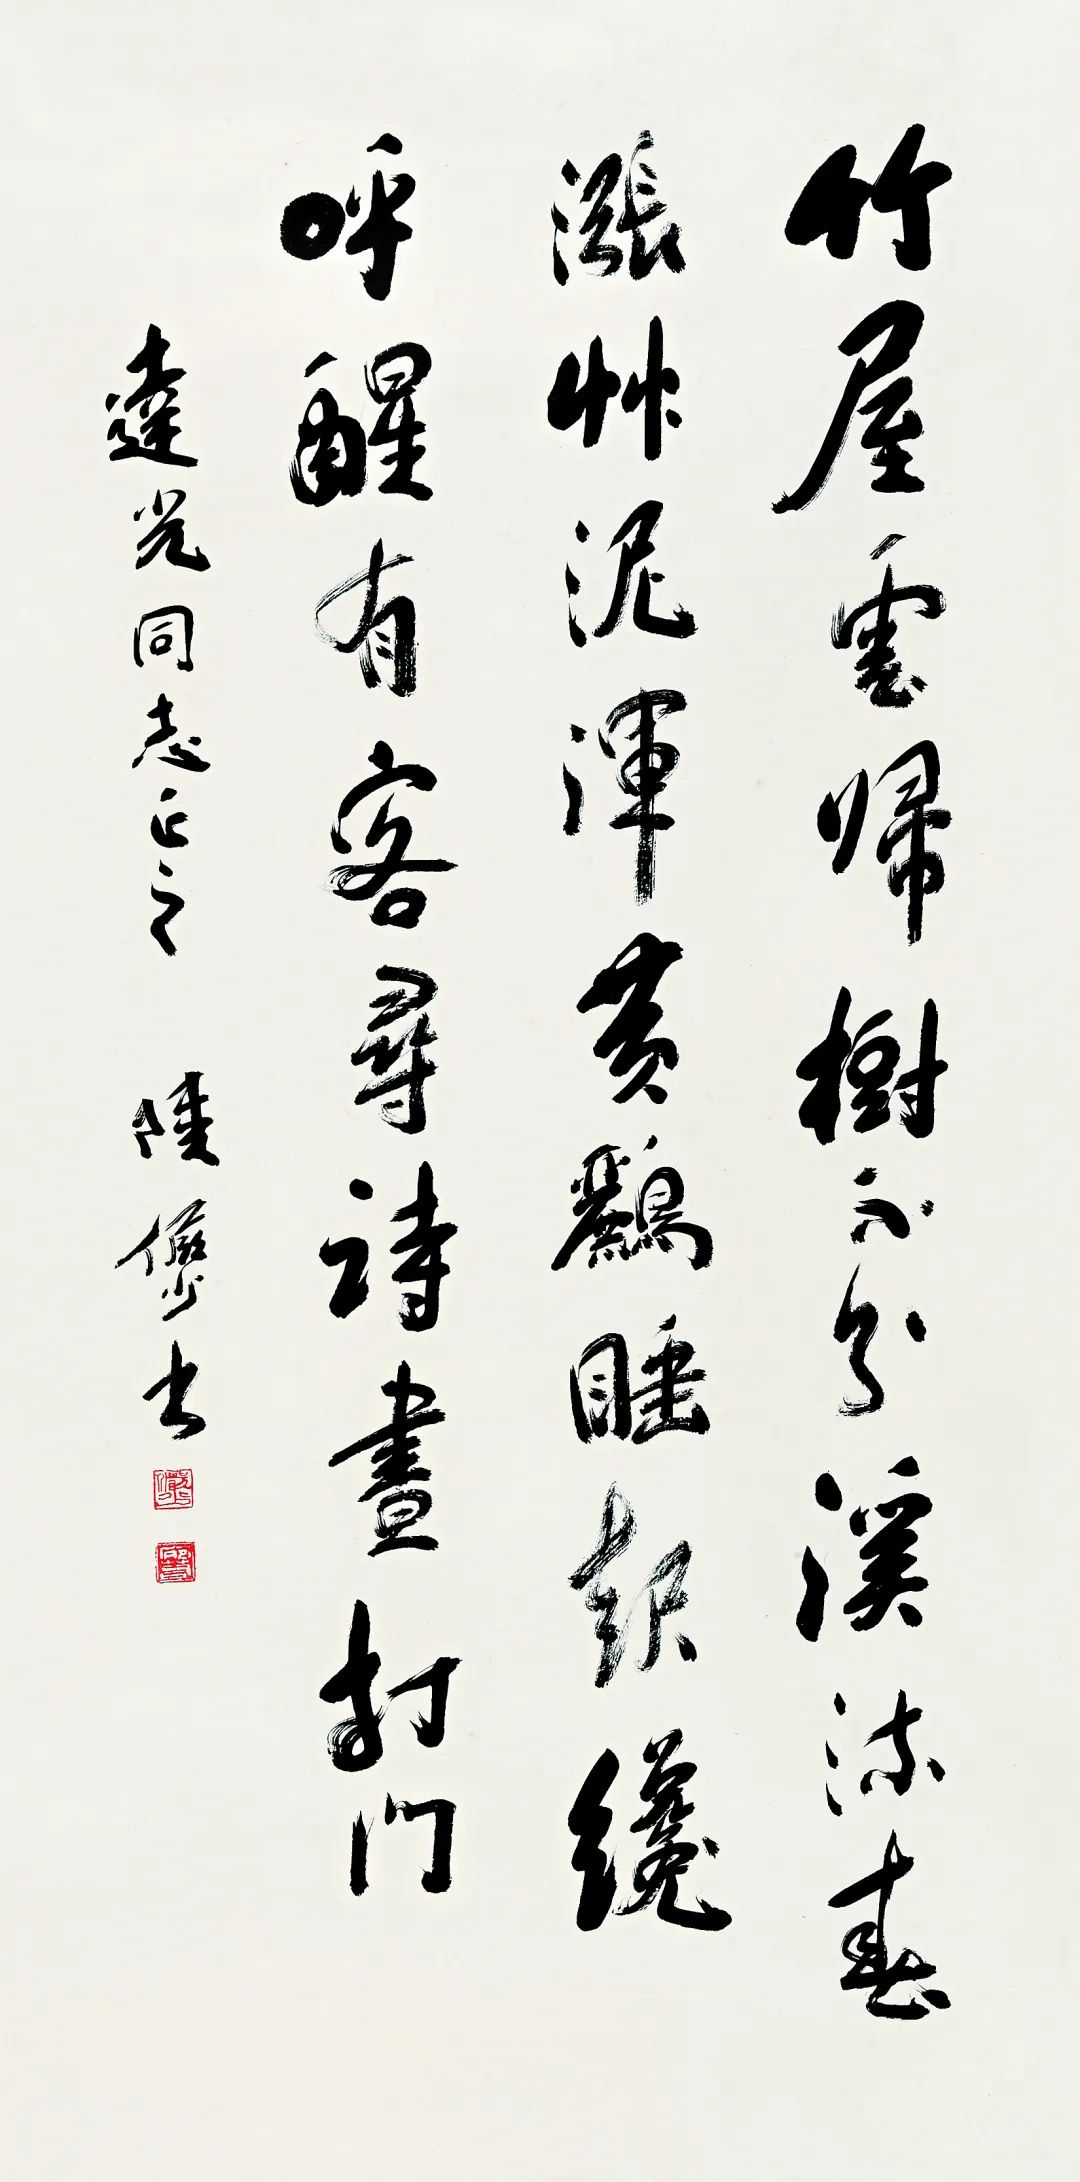 竹屋雲歸樹不分溪流春
漲艸泥渾黃鸝睡起纔
呼醒有客尋詩晝打門
達光同志正之 陸儼少書